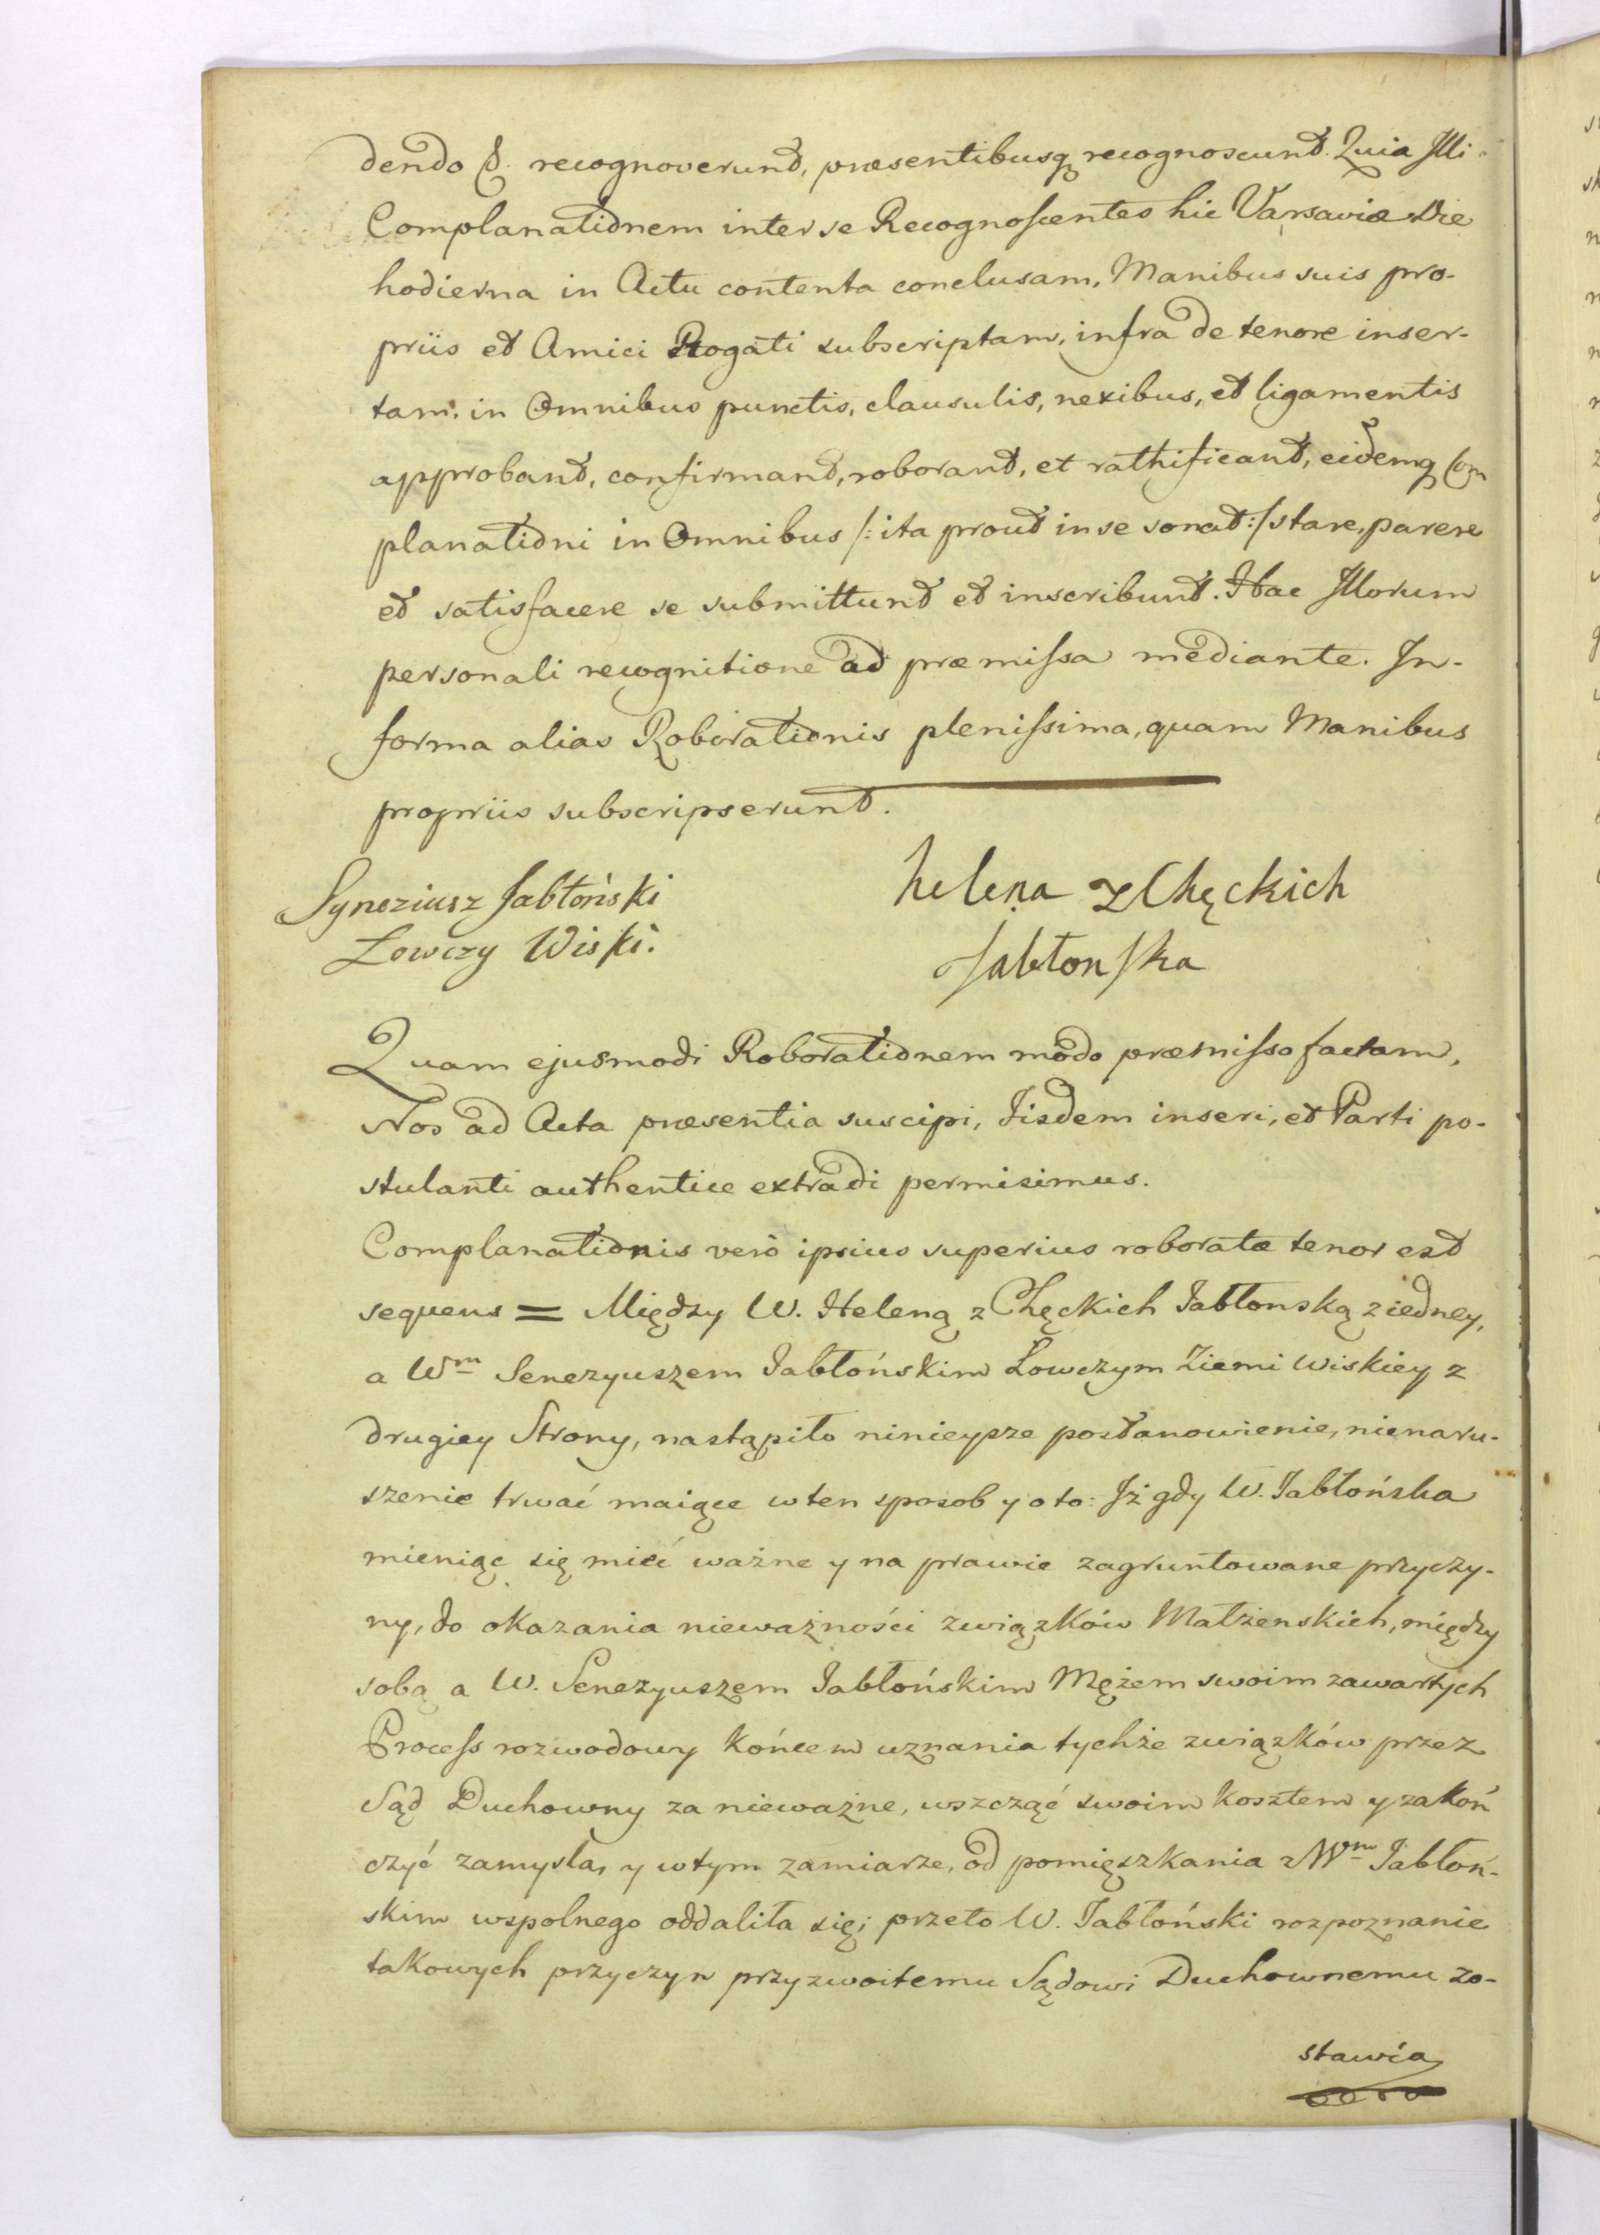 dendo &. recognoverunt, præsentibusq recognoscunt. Quia Illi
Complanationem inter se Recognoscentes hic Varsaviæ Die
hodierna in Actu contenta conclusam, Manibus suis pro-
priis et Amici Rogati subscriptam, infra de tenore inser-
tam, in Omnibus punctis, clausulis, nexibus, et ligamentis
approbant, confirmant, roborant, et rathificant, eidemq Com
planationi in Omnibus /: ita prout in se sonat :/ stare, parere
et satisfacere se submittunt et inscribunt. Hac Illorum
personali recognitione ad præmissa mediante. In-
forma alias Roborationis plenissima, quam Manibus
propriis subscripserunt.
Syneziusz Jabłoński
Łowczy Wiski.
helena z Chęckich
Jabłonska
Quam ejusmodi Roborationem modo præmisso factam,
Nos ad Acta præsentia suscipi, Iisdem inseri, et Parti po-
stulanti authentice extradi permisimus.
Complanationis verò ipsius superius roboratæ tenor est
sequens = Między W. Heleną z Chęckich Jabłonską z iedney,
a Wm Senezyuszem Jabłońskim Łowczym Ziemi Wiskiey z
drugiey Strony, nastąpiło ninieysze postanowienie, nienaru-
szenie trwać maiące w ten sposob y oto: Iż gdy W. Jabłońska
mieniąc się mieć ważne y na prawie zagruntowane przyczy-
ny, do okazania nieważności związków Małżenskich, między
sobą a W. Senezyuszem Jabłońskim Mężem swoim zawartych
Process rozwodowy końcem uznania tychże związków przez
Sąd Duchowny za nieważne, wszcząć swoim kosztem y zakoń
czyć zamysla, y w tym zamiarze, od pomięszkania z Wm Jabłoń-
skim wspolnego oddaliła się; przeto W. Jabłoński rozpoznanie
takowych przyczyn przyzwoitemu Sądowi Duchownemu zo-
stawia